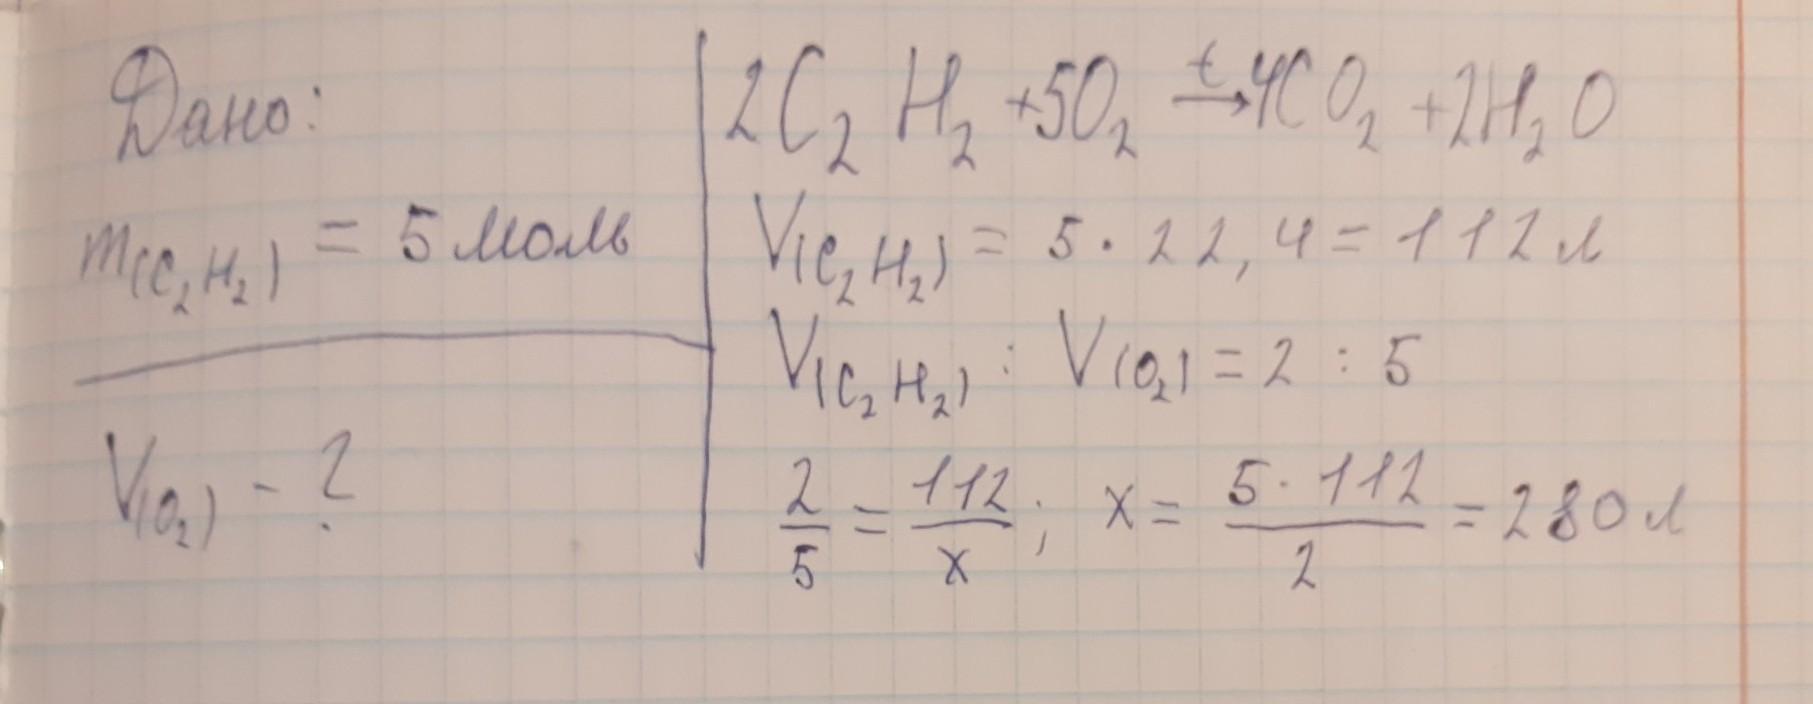 Дано:
m(C₂H₂) = 5 моль
V(O₂) - ?
2C₂H₂ + 5O₂ →ᵗ 4CO₂ + 2H₂O
V(C₂H₂) = 5 · 22,4 = 112 л
V(C₂H₂) : V(O₂) = 2 : 5
2/5 = 112/x ; x = 5 · 112 / 2 = 280 л